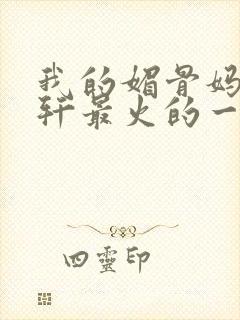 我的媚骨妈
轩最火的一
四靈印